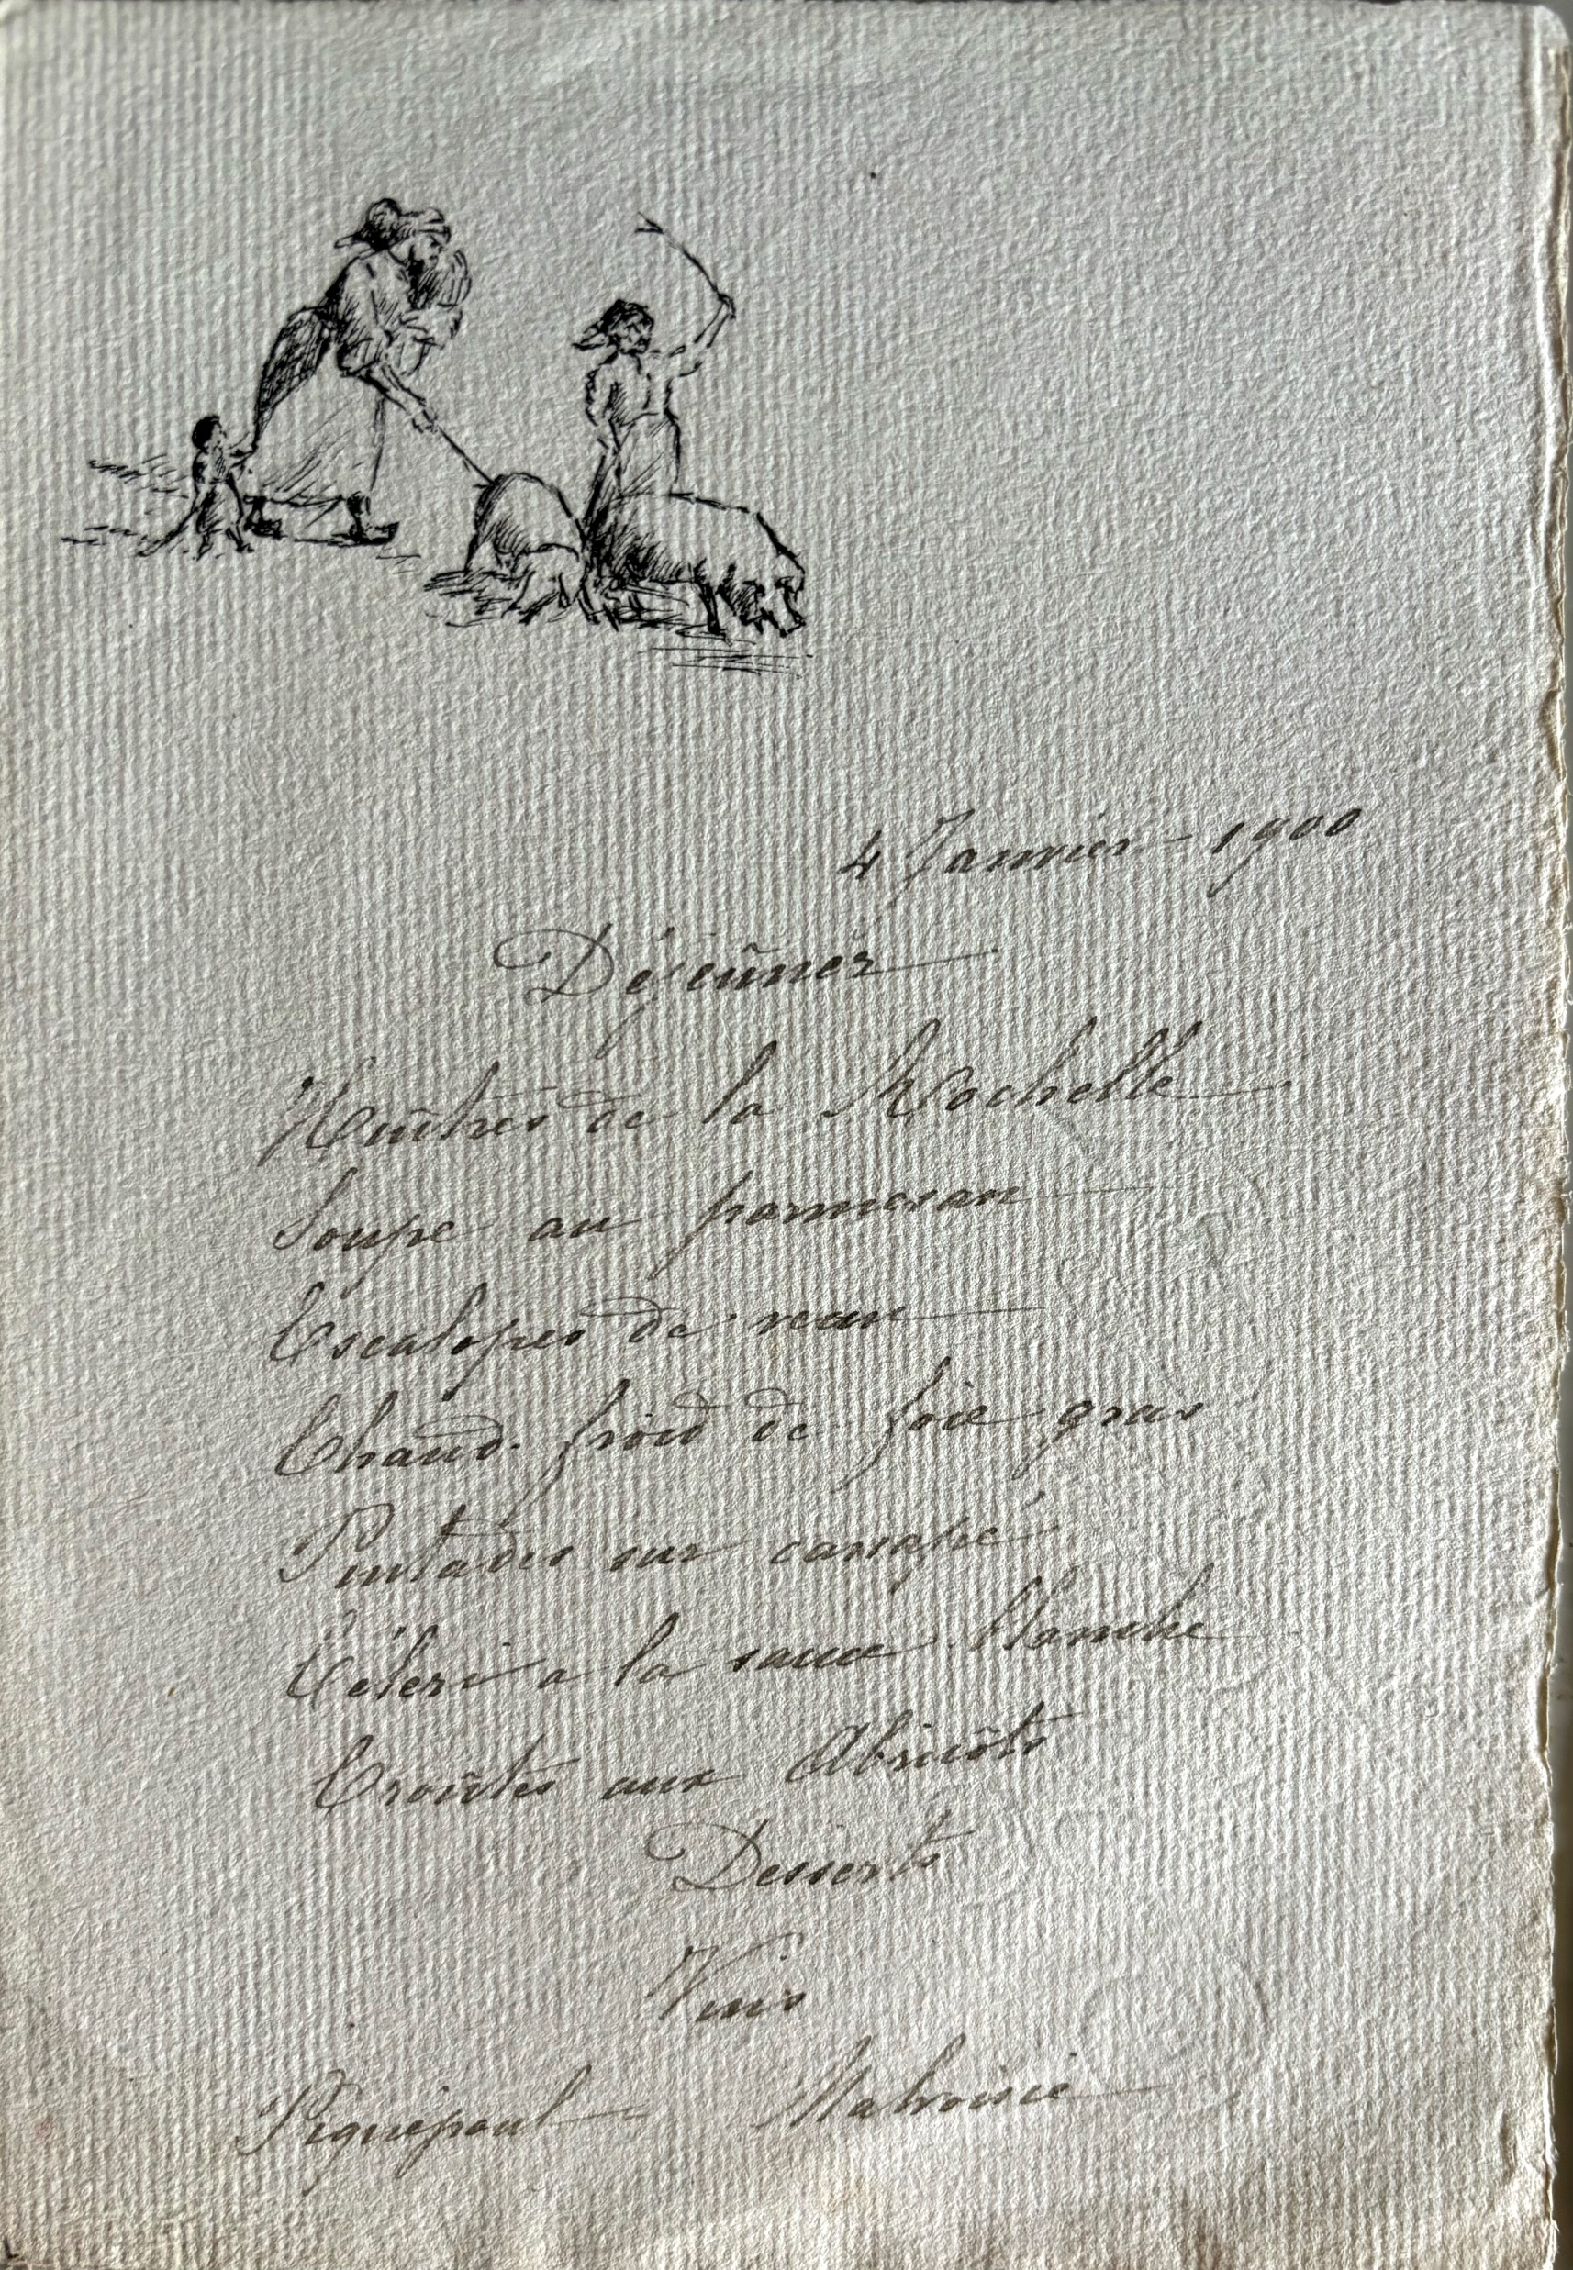 4 Janvier - 1900
Déjeûner
Huîtres de la Rochelle
Soupe au parmesan
Escalopes de veau
Chaud froid de foie gras
Pintades sur canapé
Céleri a la sauce blanche
Croûtes aux Abricôts
Desserts
Vins
Piquepoul Malvoisie